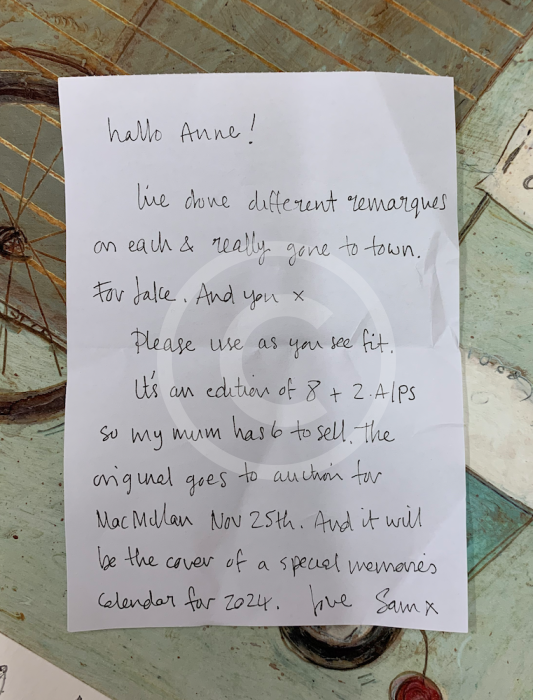 hallo Anne!
I've done different remarques
on each & really gone to town.
For Jake. And you x
Please use as you see fit.
It's an edition of 8 + 2 A/Ps
so my mum has 6 to sell. The
original goes to auction for
MacMillan Nov 25th. And it will
be the cover of a special memories
calendar for 2024. love Sam x